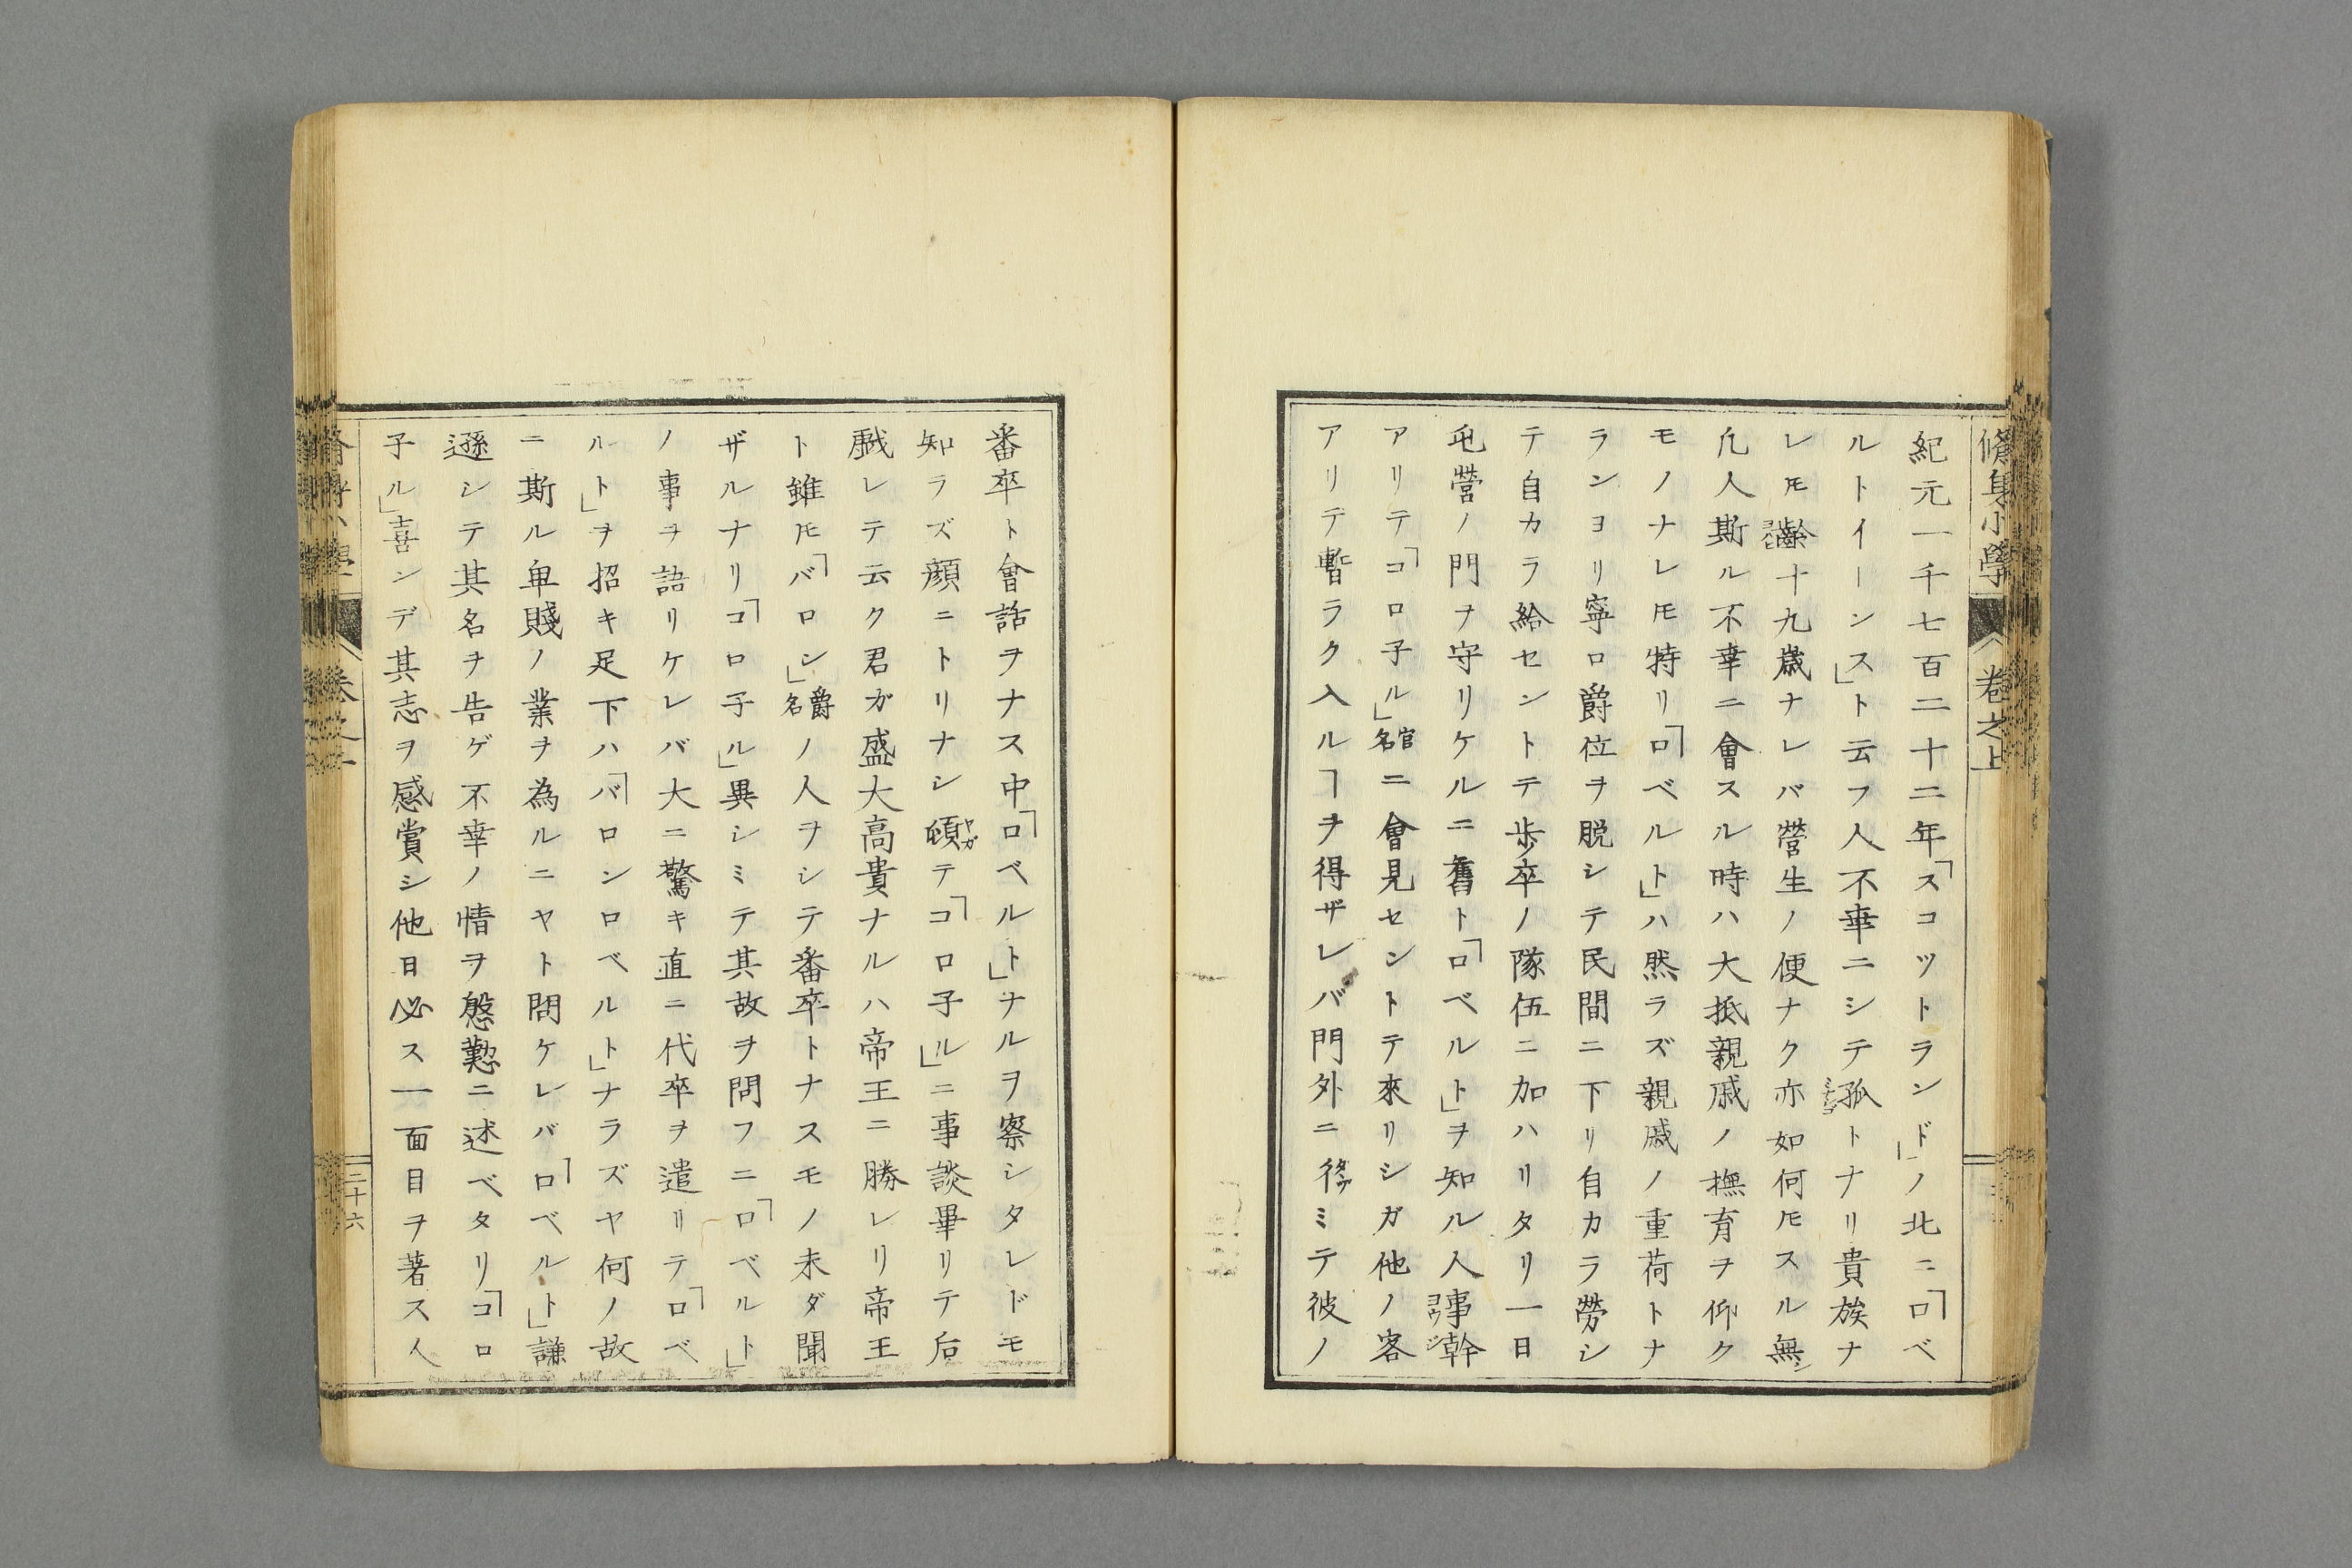 脩身小學 卷之上
紀元一千七百二十二年「スコツトランド」ノ北ニ「ロベ
ルトイーンス」ト云フ人不幸ニシテ孤トナリ貴族ナ
レ𪜈齡ヨハヒ十九歳ナレバ營生ノ便ナク亦如何𪜈スル無シ
凡人斯ル不幸ニ會スル時ハ大抵親戚ノ撫育ヲ仰ク
モノナレ𪜈特リ「ロベルト」ハ然ラズ親戚ノ重荷トナ
ランヨリ寧ロ爵位ヲ脱シテ民間ニ下リ自カラ勞シ
テ自カラ給セントテ歩卒ノ隊伍ニ加ハリタリ一日
屯營ノ門ヲ守リケルニ舊ト「ロベルト」ヲ知ル人事幹ヨウジ
アリテ「コロ子ル」官名ニ會見セントテ來リシガ他ノ客
アリテ暫ラク入ルヿヲ得ザレバ門外ニ徘ミテ彼ノ
番卒ト會話ヲナス中「ロベルト」ナルヲ察シタレドモ
知ラズ顔ニトリナシ頓ヤガテ「コロ子ル」ニ事談畢リテ后
戯レテ云ク君ガ盛大高貴ナルハ帝王ニ勝レリ帝王
ト雖𪜈「バロン」爵名ノ人ヲシテ番卒トナスモノ未ダ聞
ザルナリ「コロ子ル」異シミテ其故ヲ問フニ「ロベルト」
ノ事ヲ語リケレバ大ニ驚キ直ニ代卒ヲ遣リテ「ロベ
ルト」ヲ招キ足下ハ「バロンロベルト」ナラズヤ何ノ故
ニ斯ル卑賤ノ業ヲ為ルニヤト問ケレバ「ロベルト」謙
遜シテ其名ヲ告ゲ不幸ノ情ヲ慇懃ニ述ベタリ「コロ
子ル」喜ンデ其志ヲ感賞シ他日必ス一面目ヲ著ス人
二十六